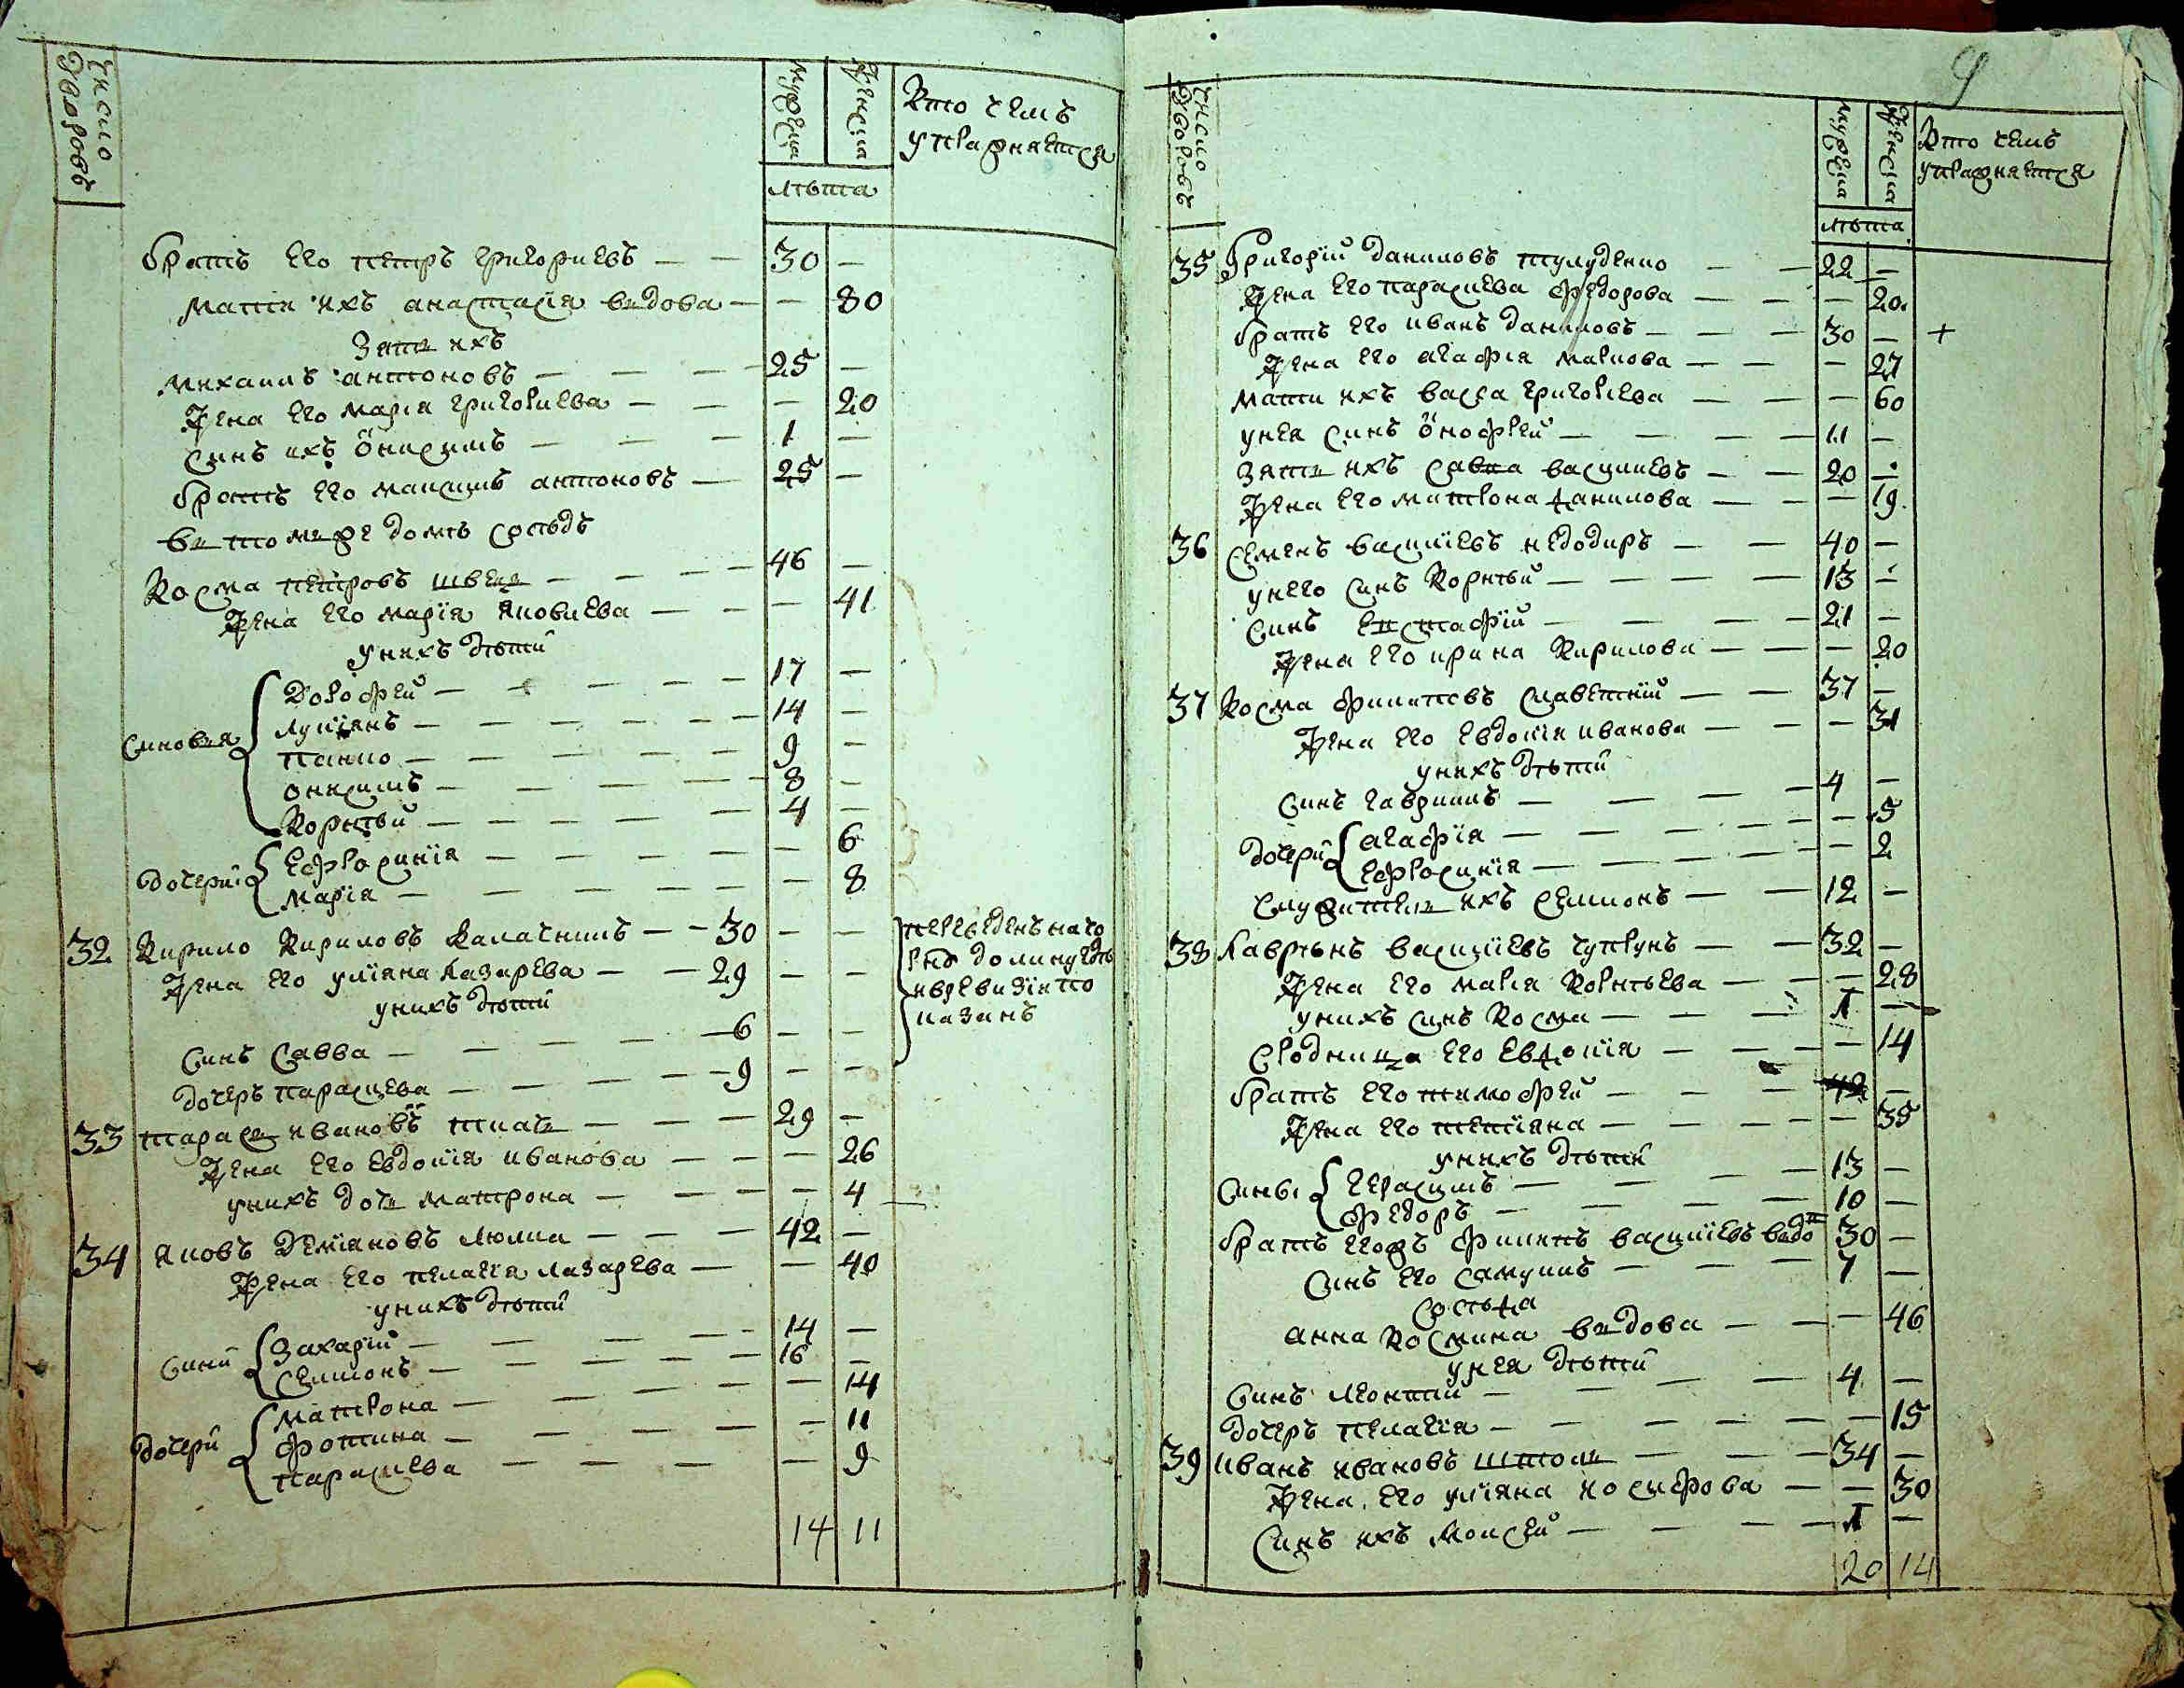 Число дворовъ
Мужеска
Женска
Лѣта
Кто чемъ упражняется
братъ его петръ григориевъ — — 30 —
Мати ихъ анастасїя вьдова — — 80
Зять ихъ
Михаилъ антоновъ — — — 25 —
Жена его Марїя григориева — — — 20
Синъ ихъ Онисимъ — — — 1 —
братъ его Максимъ антоновъ — 25 —
вь томже домѣ сосѣдъ
Косма петровъ швець — — — — 46 —
Жена его марїя Яковлева — — — 41
У нихъ дѣти
Синовья
Дорофей — — — — — 17 —
Лукїянъ — — — — — — 14 —
Панко — — — — — 9 —
Онисимъ — — — — — 8 —
Корнѣй — — — — — 4 —
Дочери
Ефросинїя — — — — — 6
Марїя — — — — — — 8
32 Кирило Кириловъ Калачникъ — — 30 — —
Жена его улїяна Лазарева — — 29 — —
У нихъ дѣти
Синъ Савва — — — — — 6 — —
Дочеръ параскева — — — — — 9 — —
33 Тарась ивановъ ткачь — — — 29 —
Жена его Евдокїя иванова — — — 26
У нихъ дочь матрона — — — — 4
34 Яковъ Демїяновъ Люлка — — — 42 —
Жена его пелагїя лазарева — — 40
У нихъ дѣти
Сини
Захарїй — — — — 14 —
Семионъ — — — — — 16 —
Дочери
Матрона — — — — — 14
Фотина — — — — — 11
Параскева — — — — 9
14 11
9
Число дворовъ
Мужеска
Женска
Лѣта
Кто чемъ упражняется
35 Григорїй даниловъ — — 22 —
Жена его параскева федорова — — — 20
братъ его иванъ даниловъ — — — 30 — +
Жена его агафїя маркова — — — 27
Мати ихъ васса григориева — — — 60
У нея синъ Онофрей — — — — 11 —
Зять ихъ савка василиевъ — — 20 —
Жена его матрона данилова — — — 19
36 Семенъ василиевъ недодиръ — — 40 —
У него синъ Корнѣй — — — — 13 —
Синъ Евстафїй — — — — 21 —
Жена его ирина Кирилова — — — 20
37 Косма филиповъ — — 37 —
Жена его Евдокїя иванова — — — 31
У нихъ дѣти
Синъ гавриилъ — — — — 4 —
Дочери
агафїя — — — — — — 5
Ефросинїя — — — — — 2
Служитель ихъ семионъ — — 12 —
38 Лаврѣнъ василиевъ чупрунъ — — 32 —
Жена его марїя Корнѣева — — — 28
У нихъ синъ Косма — — — 1 —
Сродница его Евдокїя — — — — 14
братъ его тимофей — — — 42 —
Жена его тетїяна — — — — — 35
У нихъ дѣти
Сини
Герасимъ — — — — 13 —
Федоръ — — — — 10 —
братъ егожъ филипъ василиевъ вьдо 30 —
Синъ его Самуилъ — — — 7 —
Сосѣда
анна Космина вьдова — — — 46
У нея дѣти
Синъ Леонтїй — — — — 4 —
Дочеръ пелагїя — — — — — — 15
39 иванъ ивановъ — — — 34 —
Жена его улїяна никифорова — — 30
Синъ ихъ Моисей — — — — 1 —
20 14